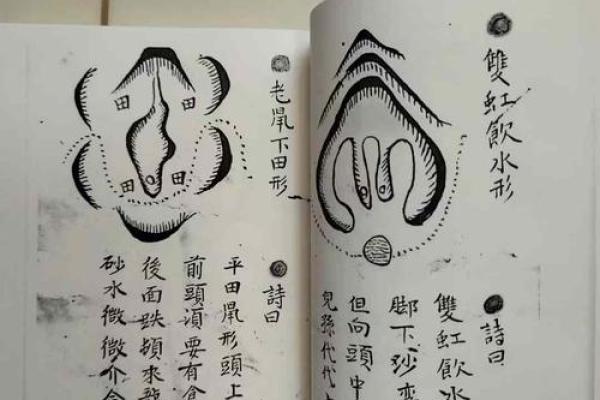 雙虹飲水形
詩曰
雙虹飲水
脚下砂
但向頭中
兒孫代代
老鼡下田形
田
田
田
田
詩曰
平田鼡形頭上
前頭須要有
後面跌頓來
砂水微微介